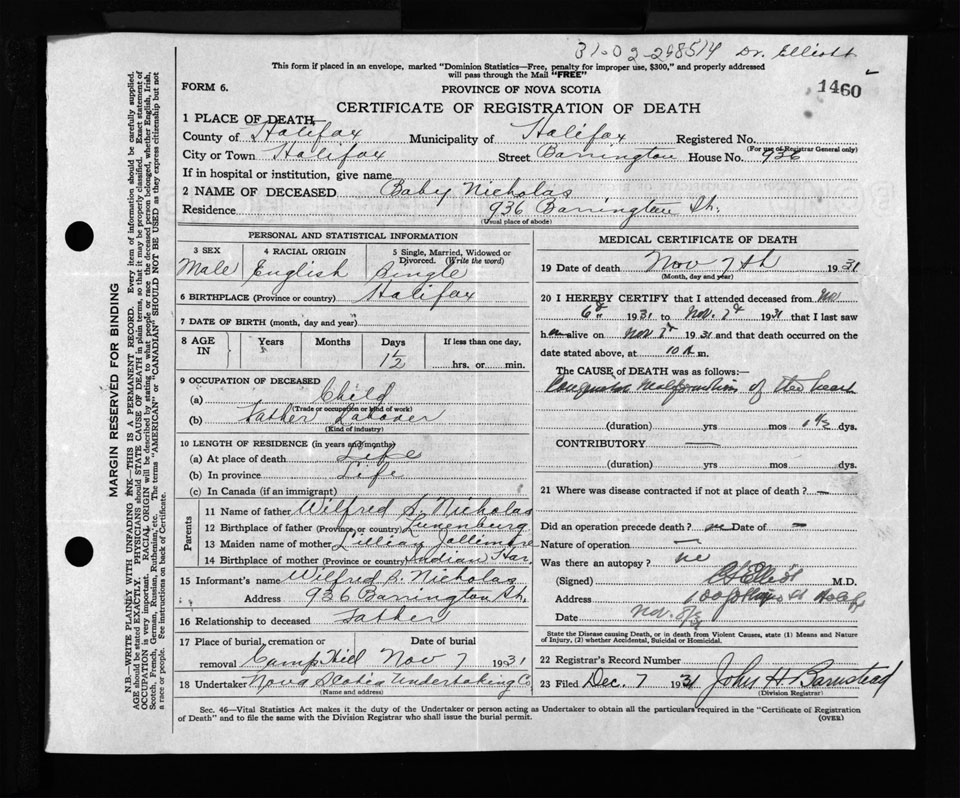 31-02-268514 Dr. Elliott
This form if placed in an envelope, marked "Dominion Statistics—Free, penalty for improper use, $300," and properly addressed
will pass through the Mail "FREE"
FORM 6.
PROVINCE OF NOVA SCOTIA
1460
CERTIFICATE OF REGISTRATION OF DEATH
1 PLACE OF DEATH
County of Halifax Municipality of Halifax Registered No.
(For use of Registrar General only)
City or Town Halifax Street Barrington House No. 936
If in hospital or institution, give name
2 NAME OF DECEASED Baby Nicholas
Residence 936 Barrington St.
(Usual place of abode)
PERSONAL AND STATISTICAL INFORMATION
3 SEX 4 RACIAL ORIGIN 5 Single, Married, Widowed or
Divorced. (Write the word)
Male English Single
6 BIRTHPLACE (Province or country) Halifax
7 DATE OF BIRTH (month, day and year)
8 AGE IN Years Months Days If less than one day,
1½ hrs. or min.
9 OCCUPATION OF DECEASED
(a) Child
(Trade or occupation or kind of work)
(b) Father Laborer
(Kind of industry)
10 LENGTH OF RESIDENCE (in years and months)
(a) At place of death Life
(b) In province Life
(c) In Canada (if an immigrant)
Parents
11 Name of father Wilfred S. Nicholas
12 Birthplace of father (Province or country) Lunenburg
13 Maiden name of mother Lillian Jollimore
14 Birthplace of mother (Province or country) Indian Har.
15 Informant's name Wilfred S. Nicholas
Address 936 Barrington St.
16 Relationship to deceased Father
17 Place of burial, cremation or Date of burial
removal Camp Hill Nov 7 1931
18 Undertaker Nova Scotia Undertaking Co
(Name and address)
MEDICAL CERTIFICATE OF DEATH
19 Date of death Nov 7th 1931
(Month, day and year)
20 I HEREBY CERTIFY that I attended deceased from Nov.
6th 1931 to Nov. 7th 1931 that I last saw
h m alive on Nov 7th 1931 and that death occurred on the
date stated above, at 10 A m.
The CAUSE OF DEATH was as follows:—
Congenital Malformation of the heart
(duration) yrs mos 1½ dys.
CONTRIBUTORY —
(duration) yrs mos dys.
21 Where was disease contracted if not at place of death? —
Did an operation precede death? no Date of —
Nature of operation —
Was there an autopsy? no
(Signed) Elliott M.D.
Address Halifax
Date Nov. 8/31
State the Disease causing Death, or in death from Violent Causes, state (1) Means and Nature
of Injury, (2) whether Accidental, Suicidal or Homicidal.
22 Registrar's Record Number
23 Filed Dec. 7 1931 John H. Barnstead
(Division Registrar)
Sec. 46—Vital Statistics Act makes it the duty of the Undertaker or person acting as Undertaker to obtain all the particulars required in the "Certificate of Registration
of Death" and to file the same with the Division Registrar who shall issue the burial permit.
(OVER)
MARGIN RESERVED FOR BINDING
N.B.—WRITE PLAINLY WITH UNFADING INK—THIS IS A PERMANENT RECORD. Every item of information should be carefully supplied.
AGE should be stated EXACTLY. PHYSICIANS should STATE CAUSE OF DEATH in plain terms, so that it may be properly classified. Exact statement of
OCCUPATION is very important. RACIAL ORIGIN will be described by stating to what people or race the deceased person belonged, whether English, Irish,
Scotch, French, German, Russian, Ruthenian, etc. The terms "AMERICAN" or "CANADIAN" SHOULD NOT BE USED as they express citizenship but not
a race or people. See instructions on back of Certificate.